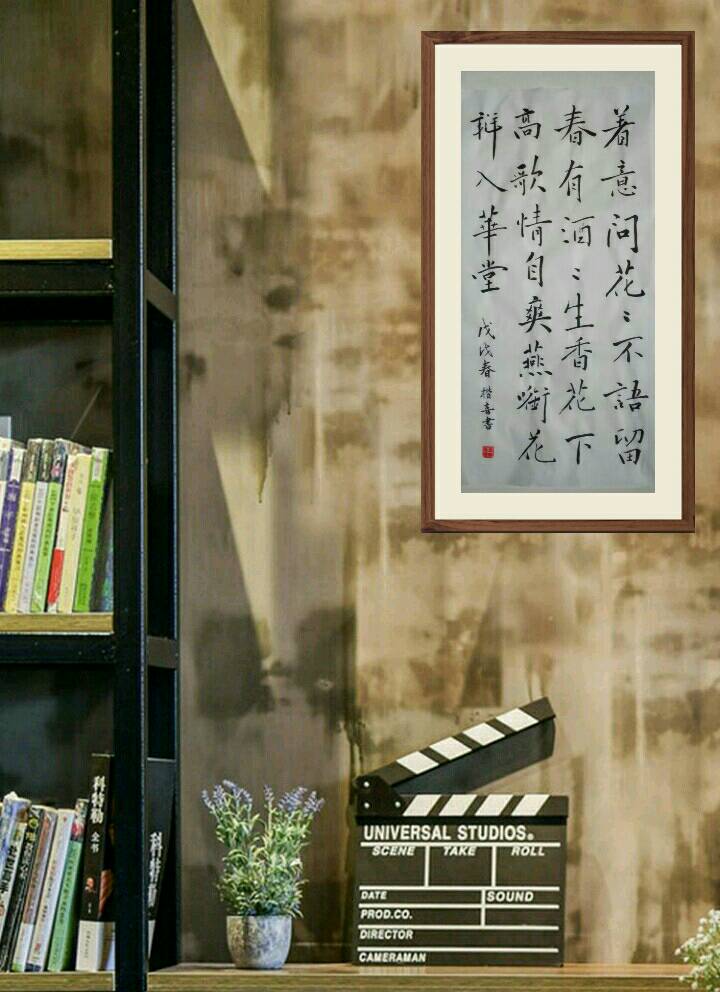 着意问花〻不語留
春有酒〻生香花下
高歌情自爽燕衔花
瓣入華堂
戊戌春楷喜書
科特勒
全书
科特勒
UNIVERSAL STUDIOS.
SCENE TAKE ROLL
DATE SOUND
PROD.CO.
DIRECTOR
CAMERAMAN